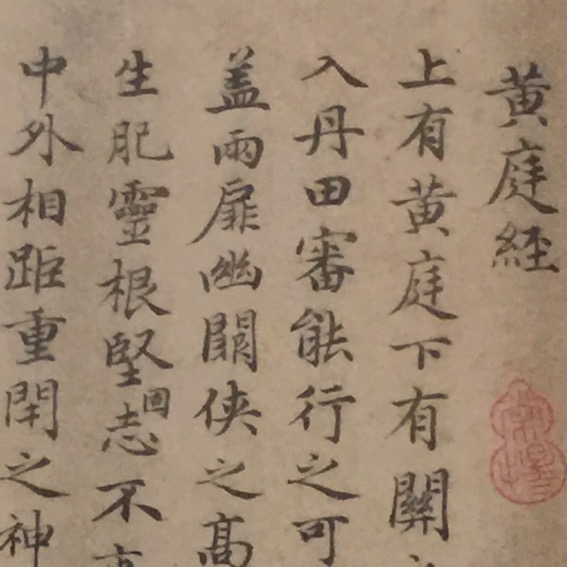 黄庭經
上有黄庭下有關
入丹田審能行之可
盖兩扉幽闕侠之髙
生肥靈根堅固志不
中外相距重閇之神